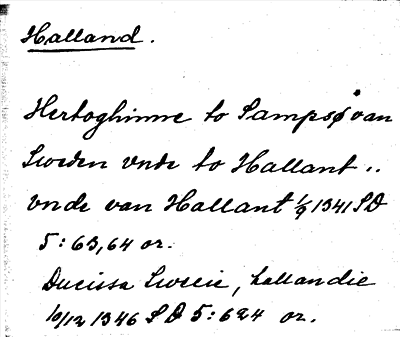 Halland.
Hertoghinne to Sampsø van
Sweden vnde to Hallant ..
vnde van Hallant 1/9 1341 SD
5:63,64 or.
Ducissa Swecie, hallandie
10/12 1346 SD 5:624 or.